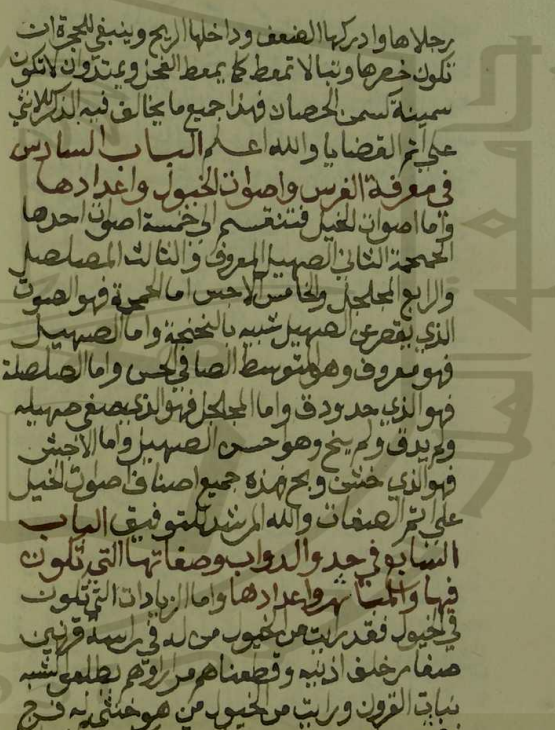 برجلاها وادركها الضعف وداخلها الريح وينبغي للحجرة ان
تكون خصرها وتبا لا تمعط كما يمعط الفحل وان لا تكون
سمينة كسمن الحصان فهذا جميع ما يخالف فيه الذكر للانثى
على اتم القضايا والله اعلم الباب السادس
في معرفة الفرس واصوات الخيول واعدادها
واما اصوات الخيل فتنقسم الى خمسة اصوات احدها
الحمحمة الثاني الصهيل المعروف والثالث المصلصل
والرابع المجلجل والخامس الاجش اما الحمحمة فهو الصوت
الذي يقصر عن الصهيل شبيه بالنحنحة واما الصهيل
فهو معروف وهو المتوسط الصافي الحسن واما الصلصلة
فهو الذي حد ودق واما المجلجل فهو الذي يصفى صهيله
ولم يدق ولم يبح وهو حسن الصهيل واما الاجش
فهو الذي خشن وبح فهذه جميع اصناف اصوات الخيل
على اتم الصفات والله المرشد للتوفيق الباب
السابع في حد والدواب وصفاتها التي تكون
فيها واعدادها واما الزيادات التي تكون
في الخيول فقد رايت من الخيول من له في راسه قرنين
صغار خلف اذنيه وقطعناهم مرارا وهم يطلعو شبه
نبات القرون ورايت من الخيول من هو خنثى له فرج